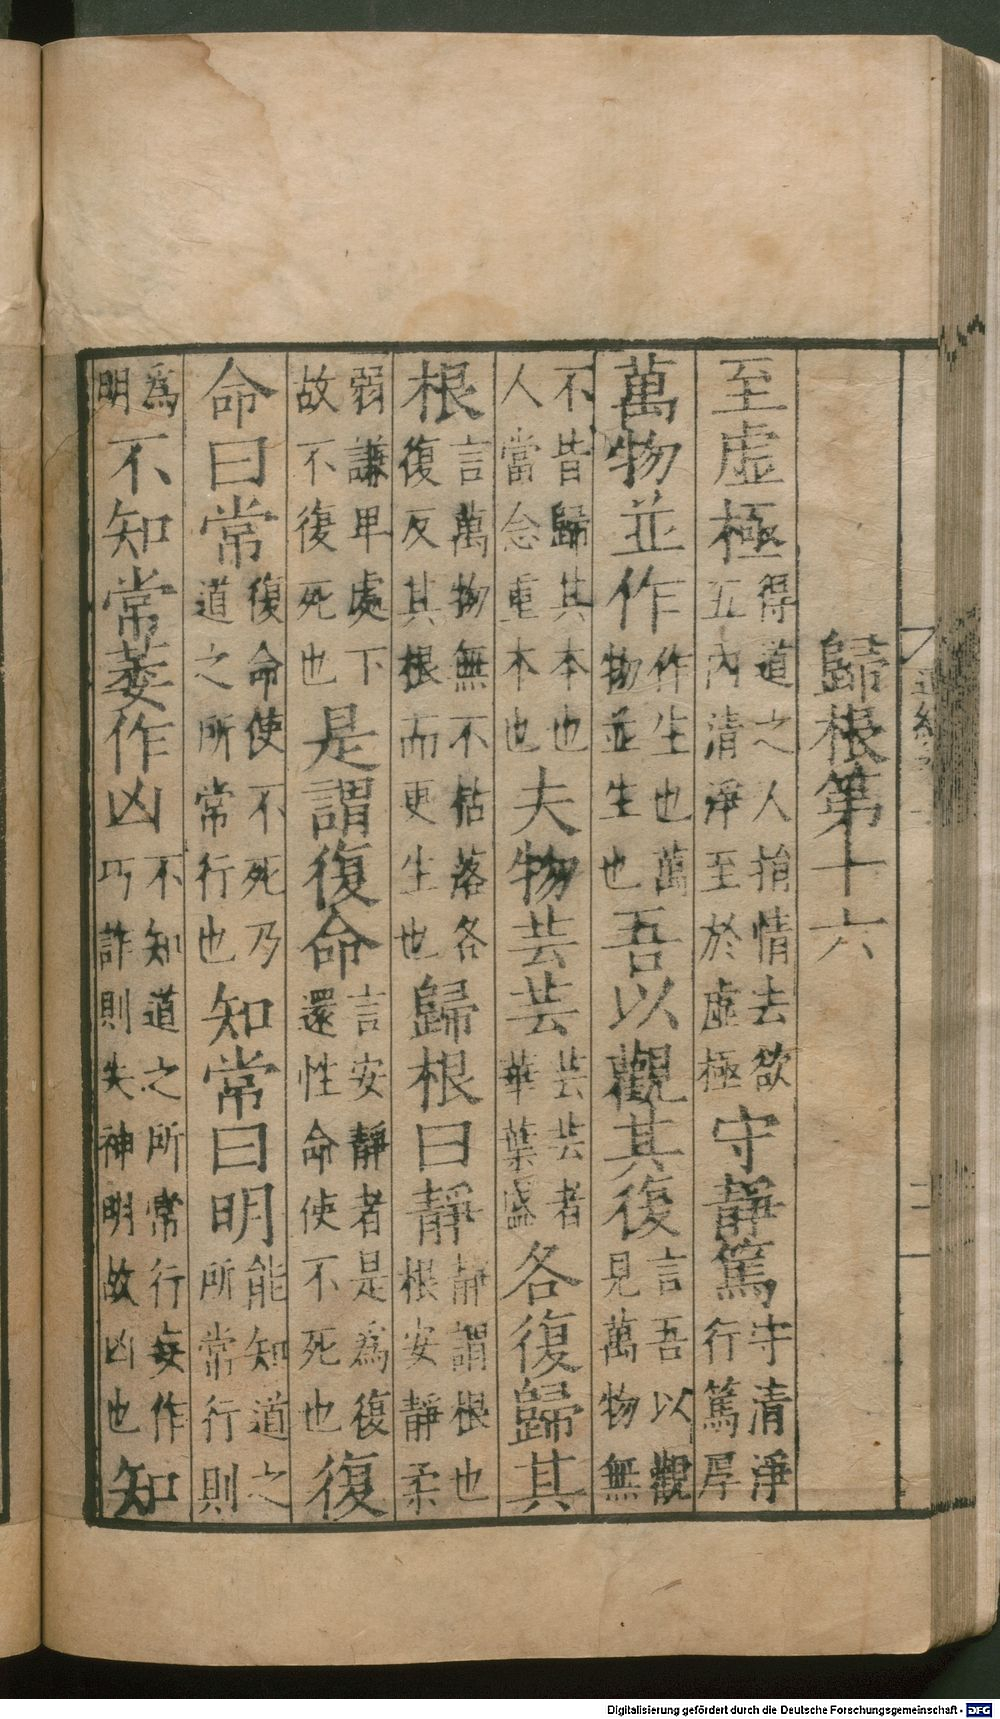 歸根第十六
至虛極得道之人捐情去欲五內清淨至於虛極守靜篤守清淨行篤厚
萬物並作作生也萬物並生也吾以觀其復言吾以觀見萬物無
不皆歸其本也人當念重本也夫物芸芸芸芸者華葉盛各復歸其
根言萬物無不枯落各復反其根而更生也歸根曰靜靜謂根也根安靜柔
弱謙卑處下故不復死也是謂復命言安靜者是為復還性命使不死也復
命曰常復命使不死乃道之所常行也知常曰明能知道之所常行則
為明不知常萎作凶不知道之所常行妄作巧詐則失神明故凶也知
Digitalisierung gefördert durch die Deutsche Forschungsgemeinschaft - DFG